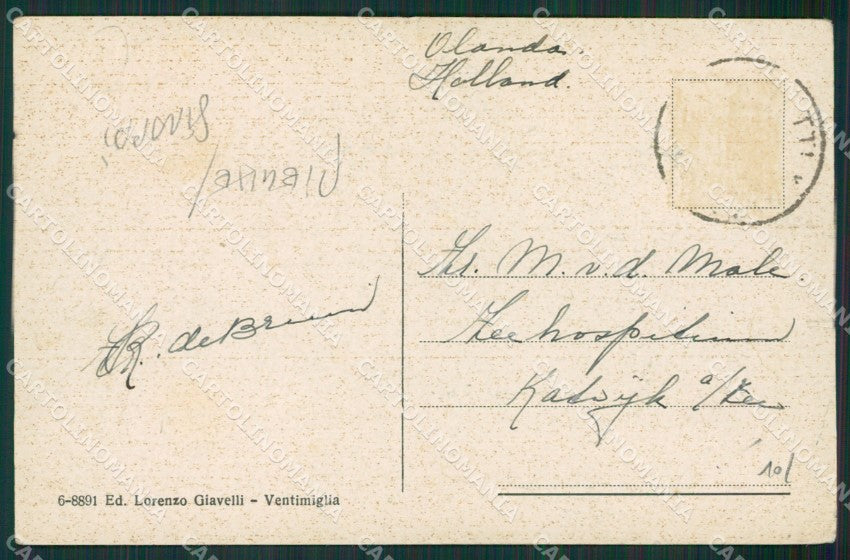 Olanda
Holland.
Zr. M. v. d. Male
Zeehospitium
Katwijk a/Zee
10/
R. de Bruin
6-8891 Ed. Lorenzo Giavelli - Ventimiglia
CARTOLINOMANIA